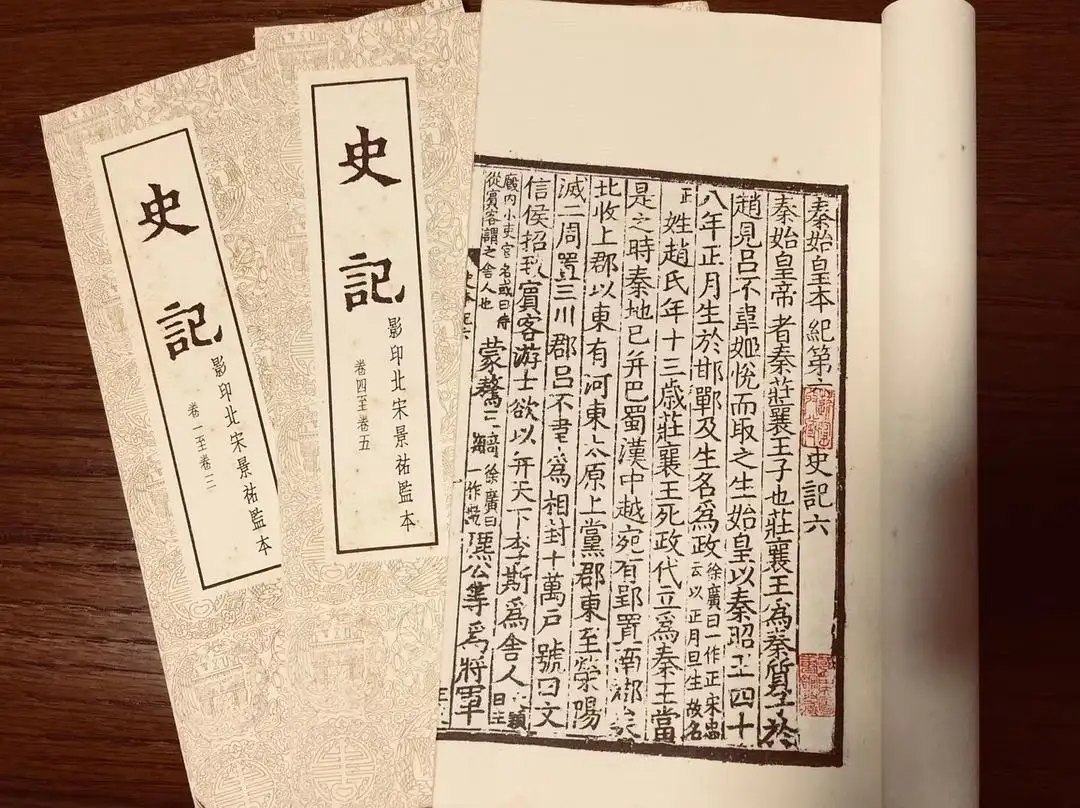 史記
影印北宋景祐監本
卷一至卷三
史記
影印北宋景祐監本
卷四至卷五
秦始皇本紀第六 史記六
秦始皇帝者秦莊襄王子也莊襄王為秦質子於
趙見呂不韋姬悅而取之生始皇以秦昭王四十
八年正月生於邯鄲及生名為政徐廣曰一作正宋忠云以正月旦生故名
正姓趙氏年十三歲莊襄王死政代立為秦王當
是之時秦地已并巴蜀漢中越宛有郢置南郡矣
北收上郡以東有河東太原上黨郡東至滎陽
滅二周置三川郡呂不韋為相封十萬戶號曰文
信侯招致賓客游士欲以并天下李斯為舍人
廄內小吏官名或曰侍從賓客謂之舍人也蒙驁王齮徐廣曰一作麃公等為將軍